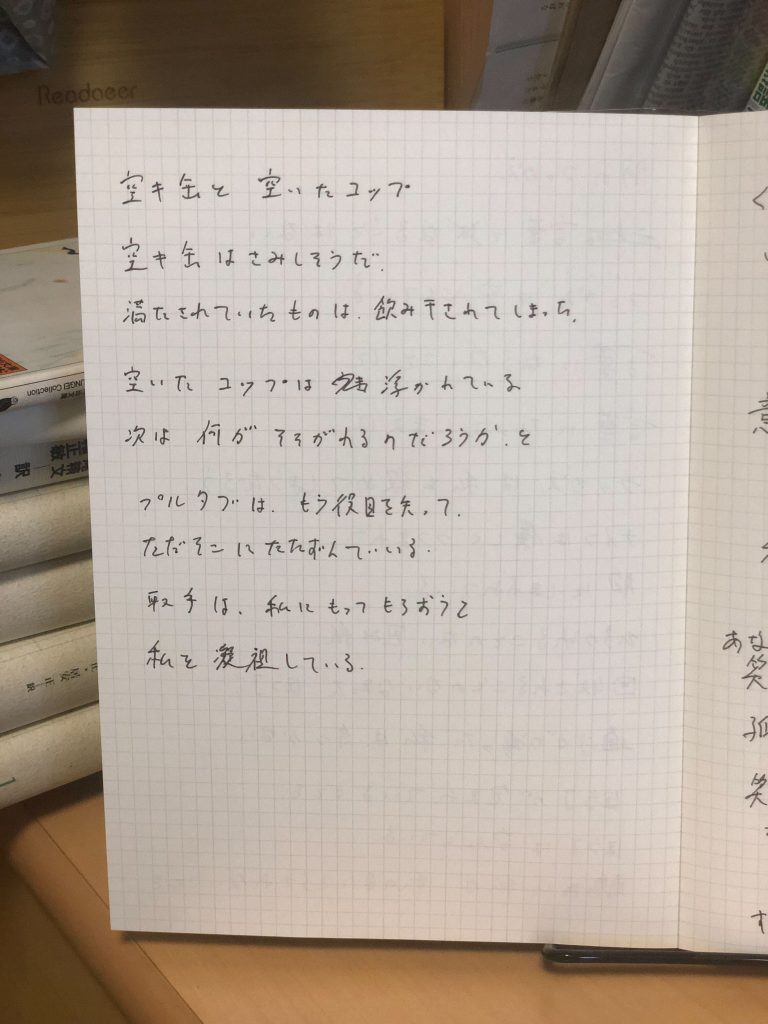 Readaeer
空き缶と 空いたコップ
空き缶はさみしそうだ.
満たされていたものは、飲み干されてしまった。
空いた コップは 浮かれている
次は 何が そそがれるのだろうか、と
プルタブは、もう役目を失って、
ただそこにたたずんでいる.
取手は、私にもってもらおうと
私を 凝視している.
く
意
あな
笑
孤
笑
す
UNGEI Collection
居安 正 訳